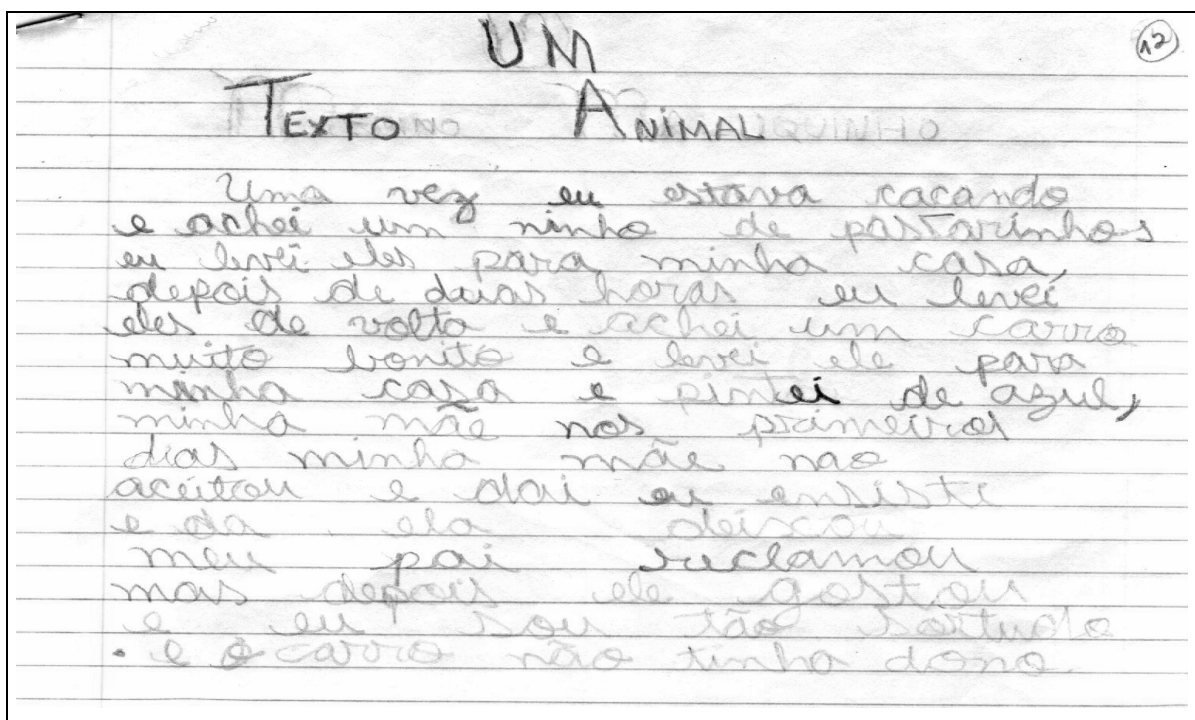 12
UM
TEXTO ANIMAL
Uma vez eu estava cacando
e achei um ninho de pastarinhos
eu levei eles para minha casa,
depois de duas horas eu levei
eles de volta e achei um carro
muito bonito e levei ele para
minha casa e pintei de azul,
minha mãe nos primeiros
dias minha mãe nao
aceitou e dai eu ensisti
e da ela deixou
meu pai reclamou
mas depois ele gostou
e eu sou tão sortudo
. e o carro não tinha dono